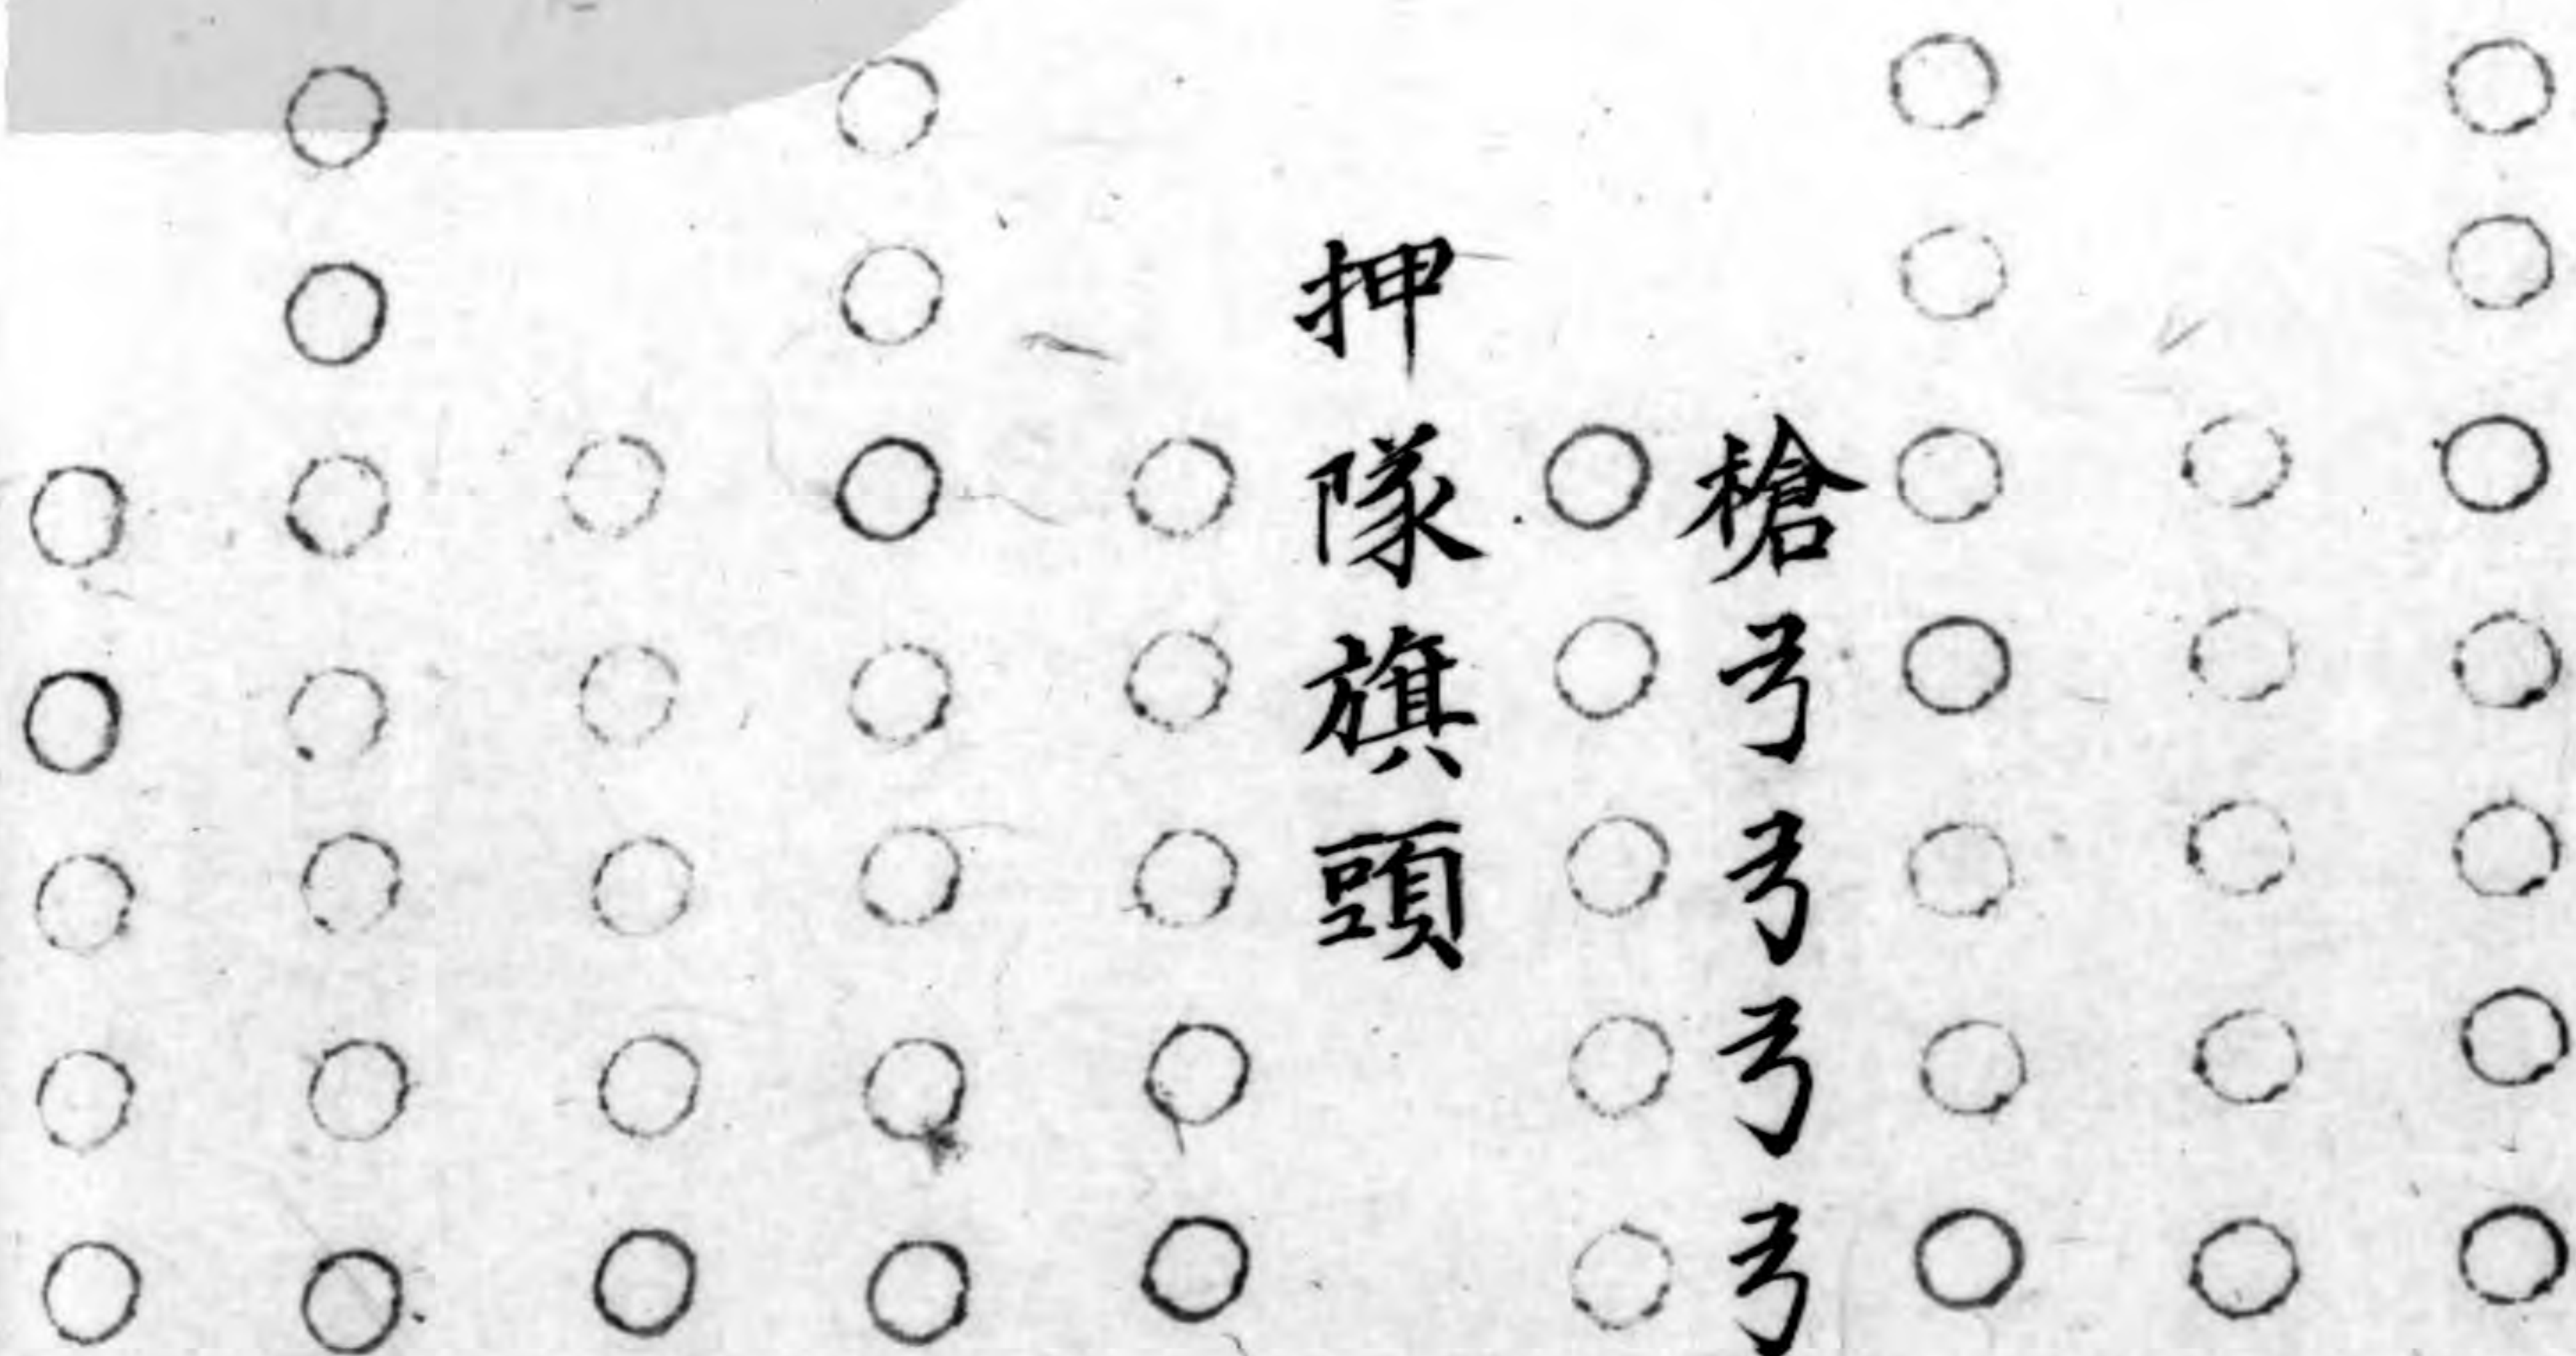 槍弓弓弓弓
押隊旗頭